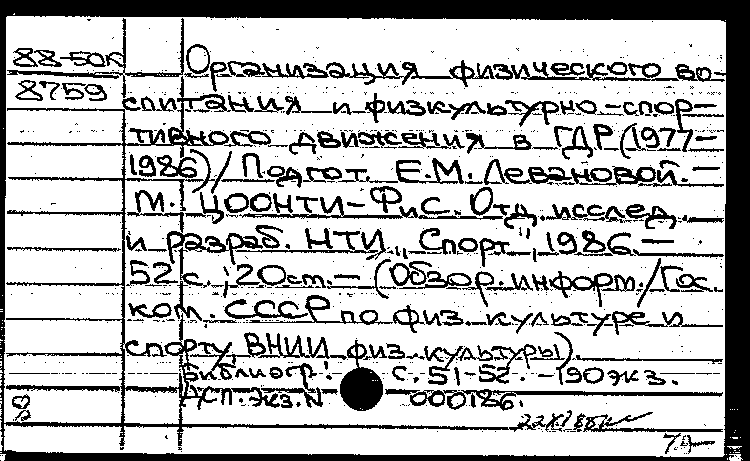 88-50к Организация физического во-
8759 спитания и физкультурно-спор-
тивного движения в ГДР (1977-
1986) / Подгот. Е.М. Левановой. –
М.: ЦООНТИ-ФиС. Отд. исслед.
и разраб. НТИ „Спорт", 1986. –
52 с.; 20 см. – (Обзор. информ. / Гос.
ком. СССР по физ. культуре и
спорту, ВНИИ физ. культуры).
Библиогр.: с. 51-52. – 190 экз.
Дсп. Экз. N 000186.